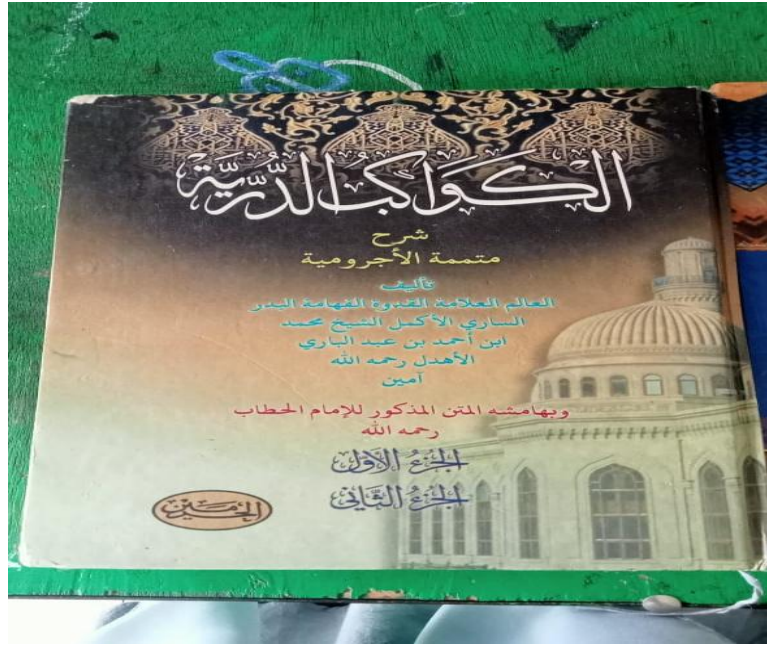 الكَوَاكِبُ الدُّرِّيَّة
شرح
متممة الأجرومية
تأليف
العالم العلامة القدوة الفهامة البدر
الساري الأكمل الشيخ محمد
ابن أحمد بن عبد الباري
الأهدل رحمه الله
آمين
وبهامشه المتن المذكور للإمام الحطاب
رحمه الله
الجزءُ الأوّل
الجزءُ الثّاني
الحرمين